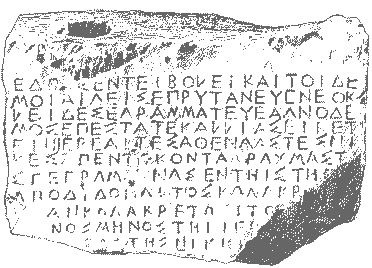 ΕΔΟΧΣΕΝΤΕΙΒΟΛΕΙΚΑΙΤΟΙΔΕ
ΜΟΙΑΙΓΕΙΣΕΠΡΥΤΑΝΕΥΕΝΕΟΚ
ΛΕΙΔΕΣΕΓΡΑΜΜΑΤΕΥΕΑΓΝΟΔΕ
ΜΟΣΕΠΕΣΤΑΤΕΚΑΛΛΙΑΣΕΙΠΕΤ
ΕΙΗΙΕΡΕΑΙΤΕΣΑΘΕΝΑΑΣΤΕΣΝΙ
ΚΕΣΠΕΝΤΕΚΟΝΤΑΔΡΑΧΜΑΣΤ
ΑΣΓΕΓΡΑΜΜΕΝΑΣΕΝΤΗΙΣΤΗΛ
ΑΠΟΔΙΔΟΝΑΙΤΟΣΚΩΛΑΚΡ
ΑΝΚΩΛΑΚΡΕΤΩΣΙΤΟ
ΝΟΣΜΗΝΟΣΤΗΙΙΕΡΕ
ΤΗΣΝΙΚΗΣ